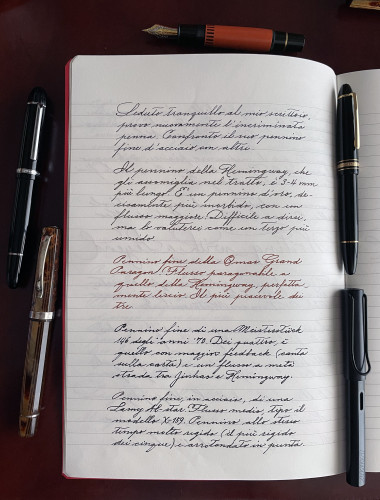 Seduto tranquillo al mio scrittoio,
provo nuovamente l'incriminata
penna. Confronto il suo pennino
fine d'acciaio con altri.
Il pennino della Hemingway, che
gli assomiglia nel tratto, è 3-4 mm
più lungo. È un pennino d'oro, de-
cisamente più morbido, con un
flusso maggiore. Difficile a dirsi,
ma lo valuterei come un terzo più
umido.
Pennino fine della Omas Grand
Paragon. Flusso paragonabile a
quello della Hemingway, perfetta-
mente liscio. Il più piacevole dei
tre.
Pennino fine di una Meisterstück
146 degli anni '70. Dei quattro, è
quello con maggior feedback (canta
sulla carta) e un flusso a metà
strada tra Jinhao e Hemingway.
Pennino fine, in acciaio, di una
Lamy Al-star. Flusso medio, tipo il
modello X-159. Pennino allo stesso
tempo molto rigido (il più rigido
dei cinque) e arrotondato in punta.